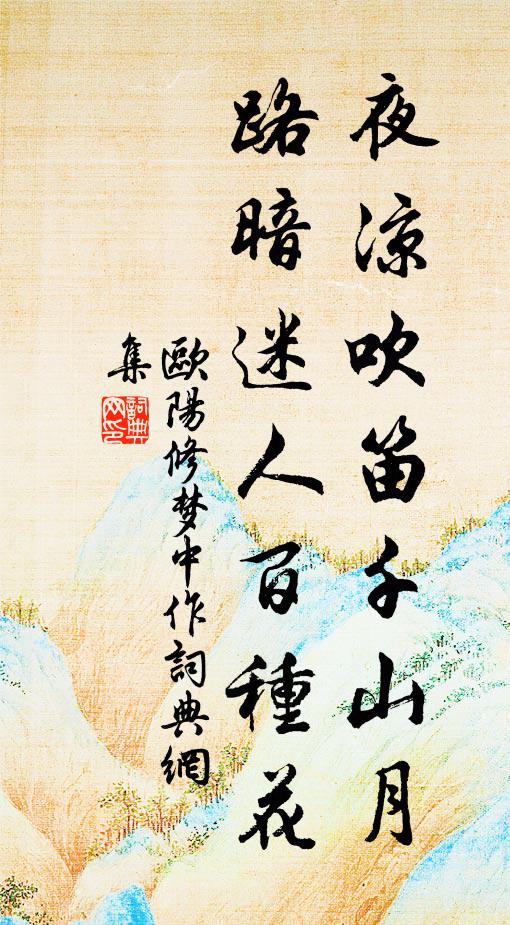 夜涼吹笛千山月
路暗迷人百種花
歐陽修梦中作詞典網
集
詞典网印